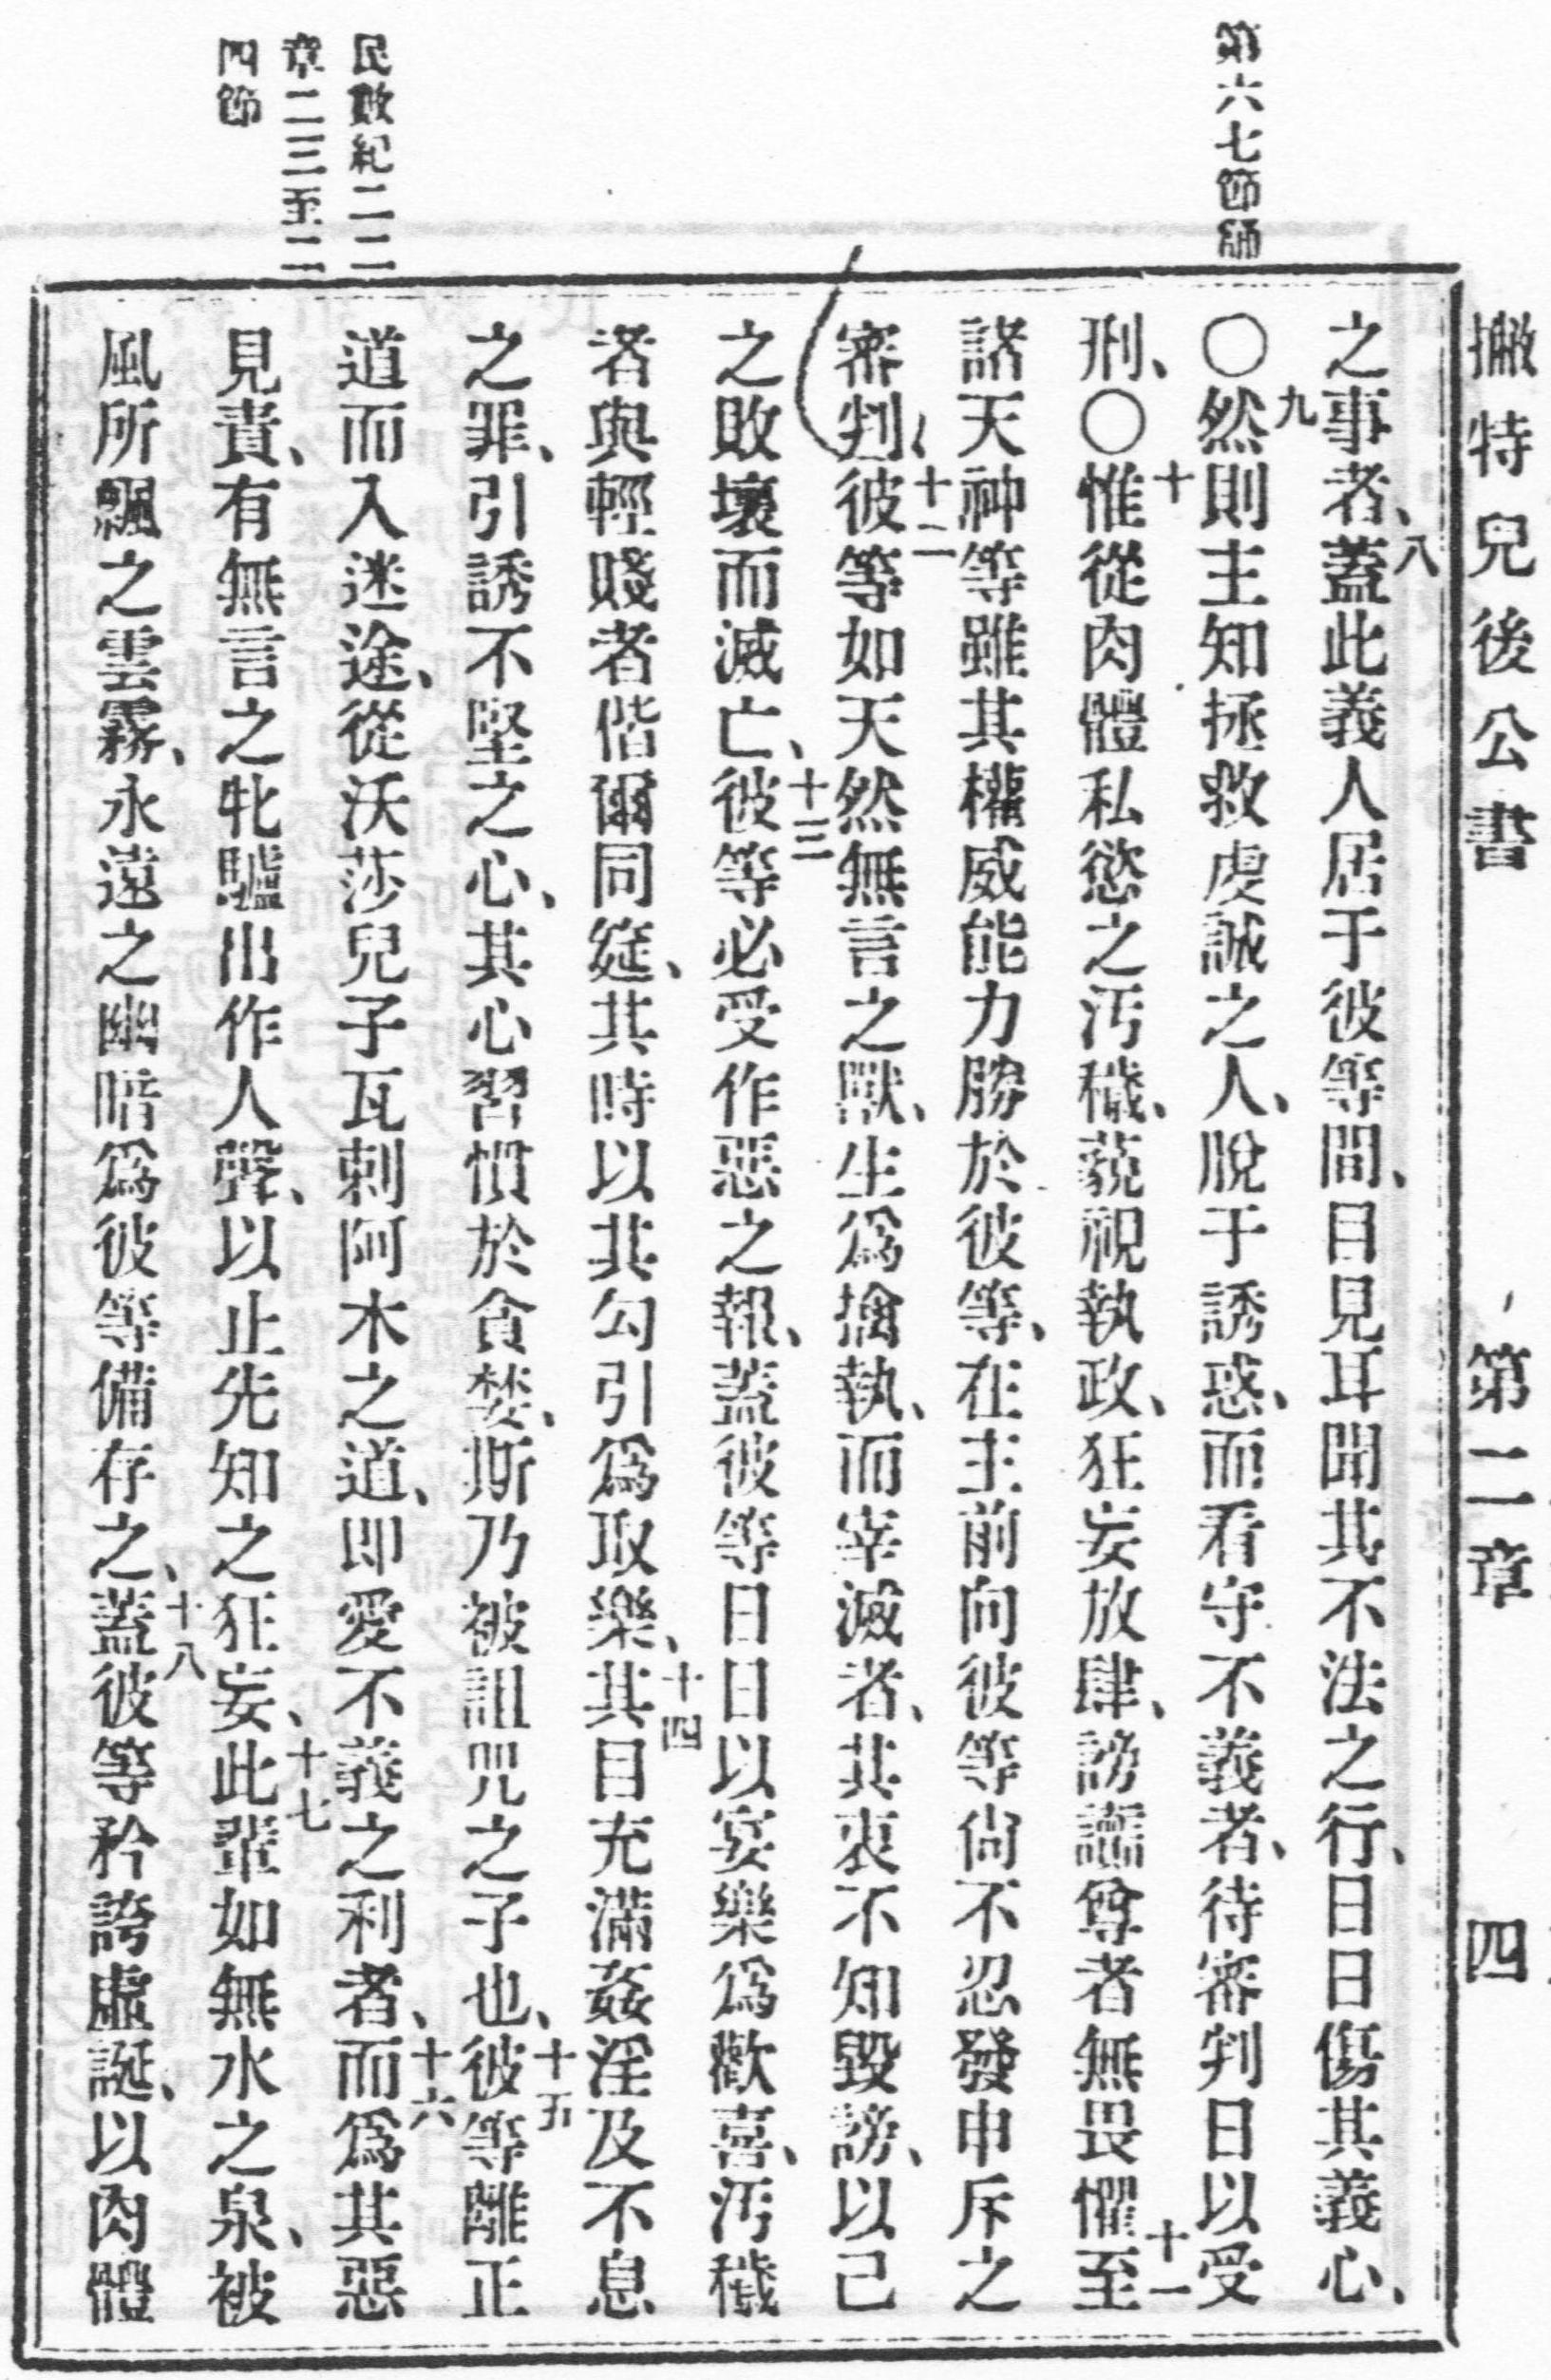 撇特兒後公書 第二章 四
第六七節師
民數紀二二
章二三至二
四節
之事者、八蓋此義人居于彼等間、目見耳聞其不法之行、日日傷其義心、
〇九然則主知拯救虔誠之人、脫于誘惑、而看守不義者、待審判日以受
刑、〇十惟從肉體私慾之汚穢、藐視執政、狂妄放肆、謗讟尊者無畏懼十一至
諸天神等雖其權威能力勝於彼等、在主前向彼等尙不忍發申斥之
審判、十二彼等如天然無言之獸、生爲擒執、而宰滅者、其衷不知毀謗、以己
之敗壞而滅亡、十三彼等必受作惡之報、蓋彼等日日以宴樂爲歡喜、汚穢
者與輕賤者偕爾同筵、其時以其勾引爲取樂、十四其目充滿姦淫及不息
之罪、引誘不堅之心、其心習慣於貪婪、斯乃被詛咒之子也、十五彼等離正
道而入迷途、從沃莎兒子瓦剌阿木之道、即愛不義之利者、十六而爲其惡
見責、有無言之牝驢出作人聲、以止先知之狂妄、十七此輩如無水之泉、被
風所飄之雲霧、永遠之幽暗爲彼等備存之、十八蓋彼等矜誇虛誕、以肉體